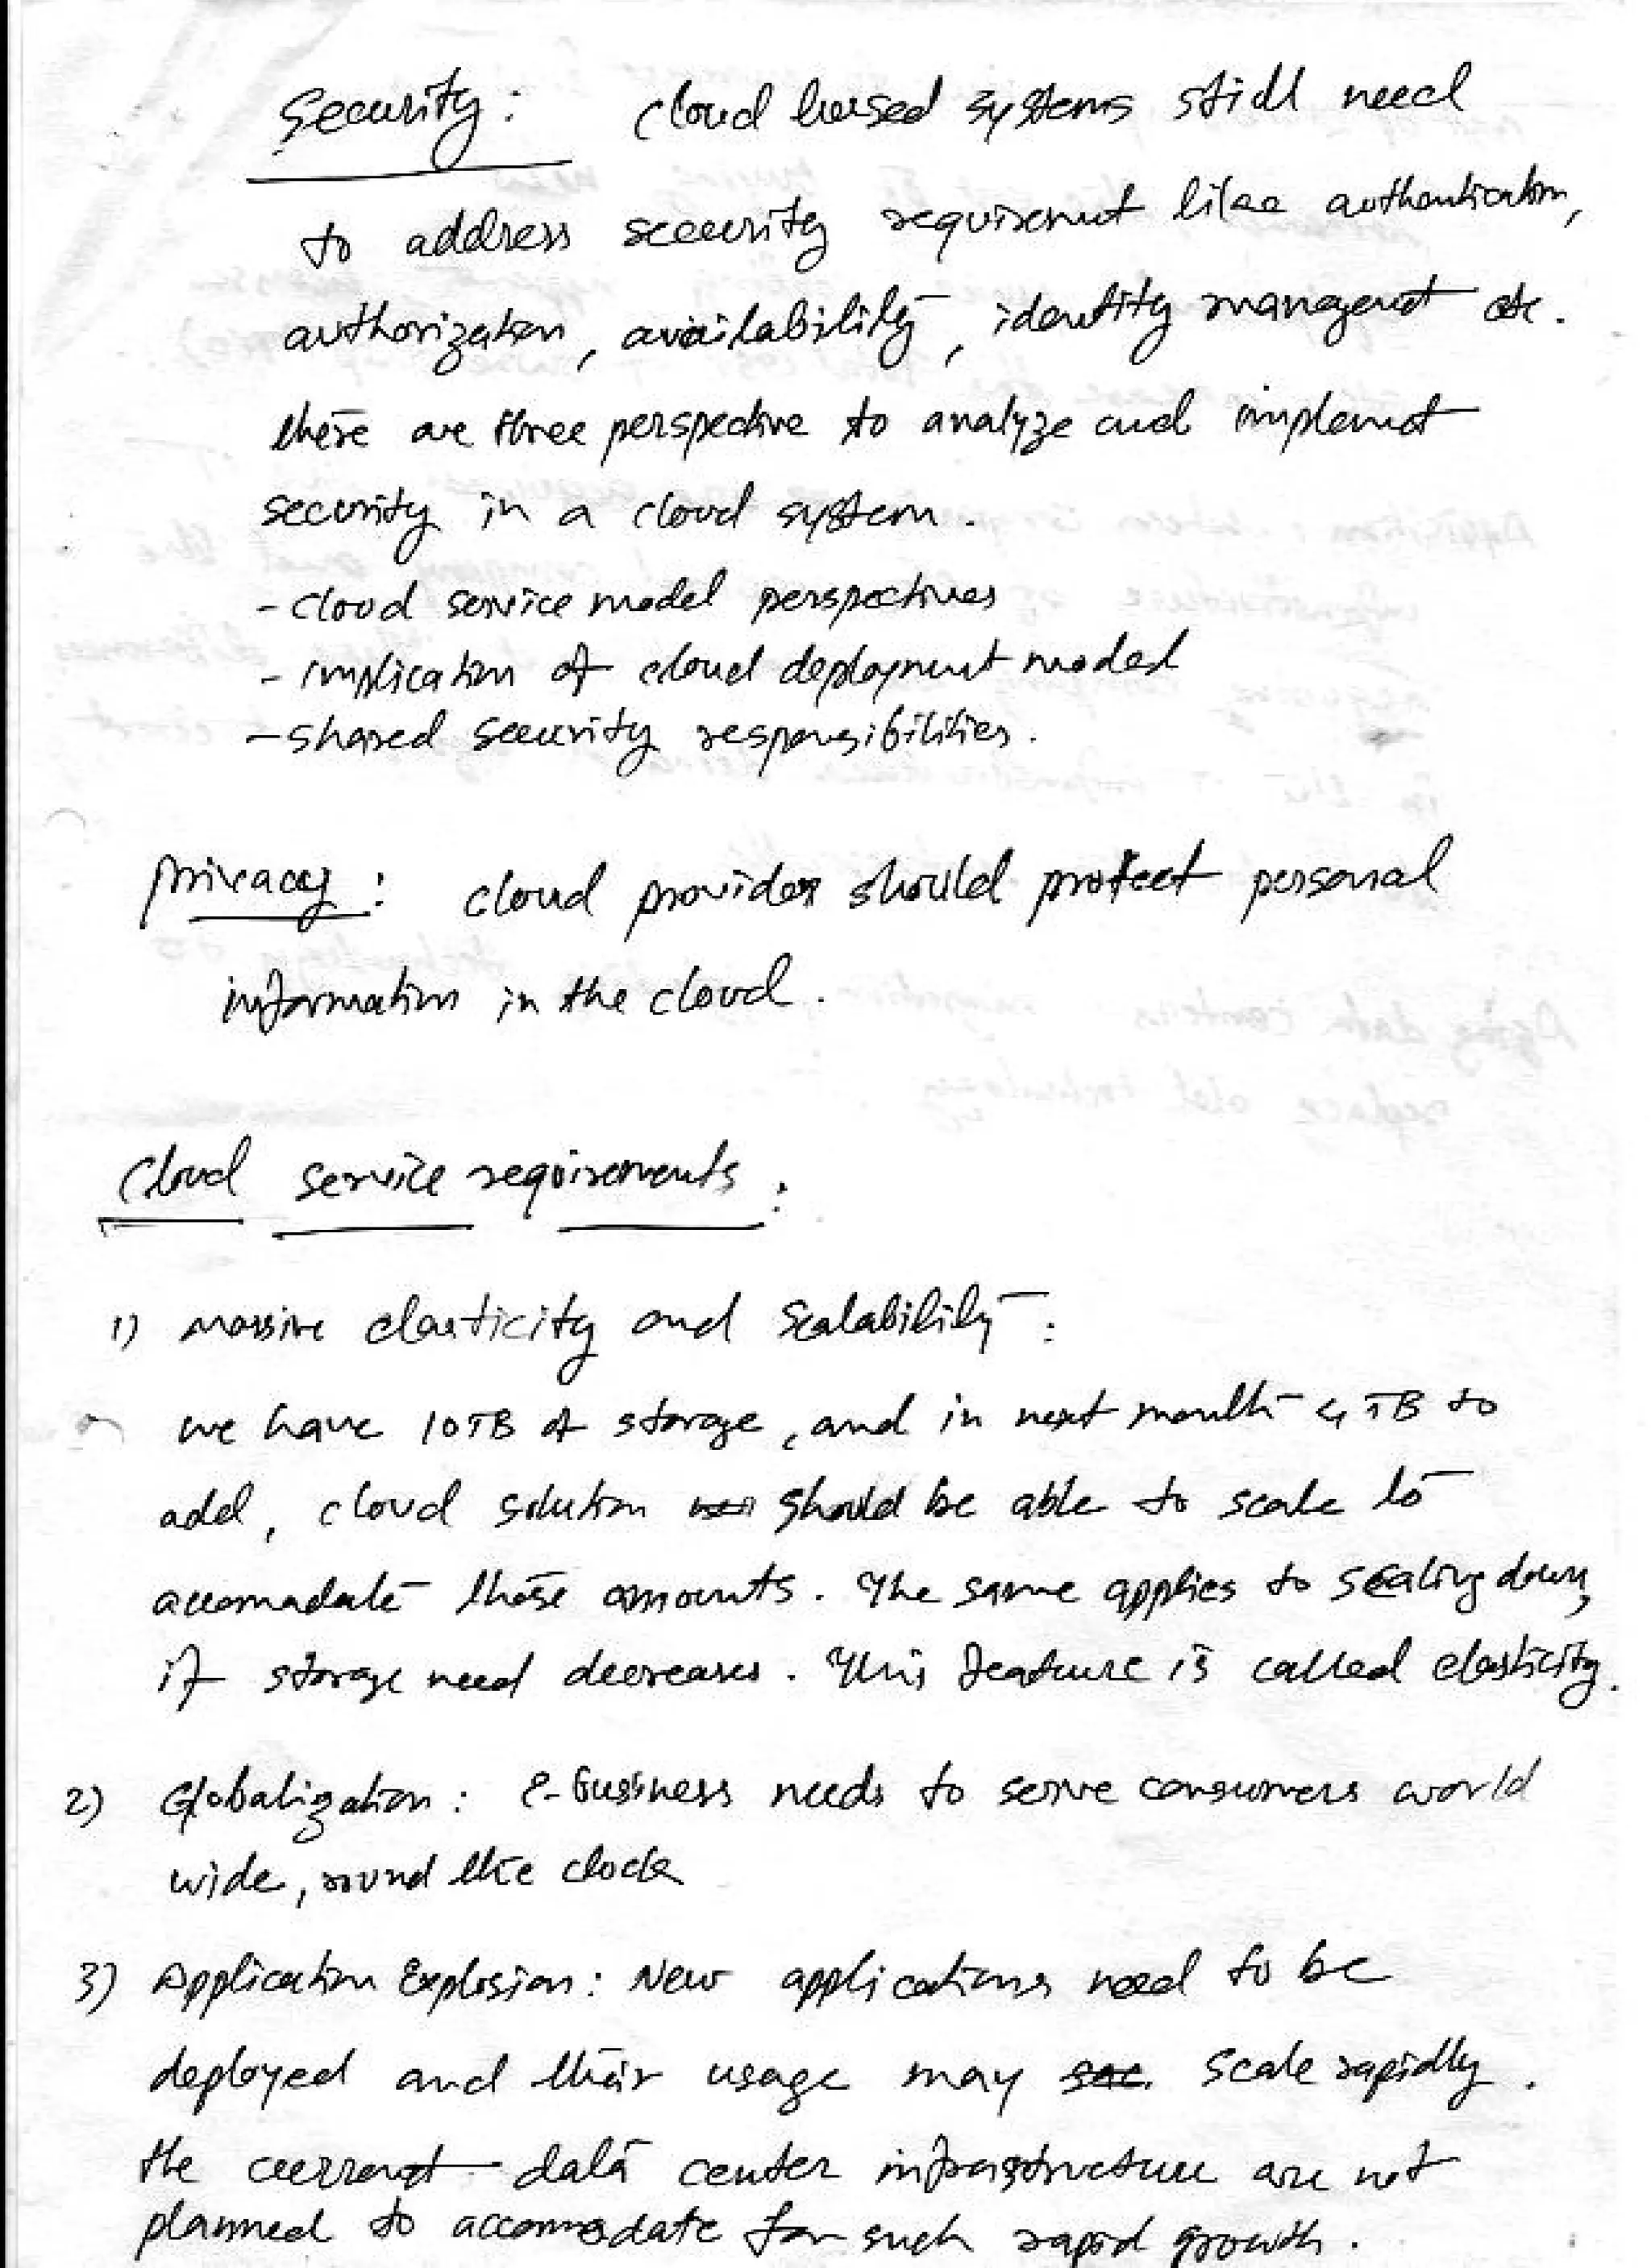 Security: Cloud based systems still need
to address security requirement like authentication,
authorization, availability, identity managent etc.
there are three perspective to analyze and implemt
security in a cloud system.
- cloud service model perspectives
- implication of cloud deployment model
- shared security responsibilities.
privacy: cloud provider should protect personal
information in the cloud.
Cloud service requirements:
1) Massive elasticity and Scalability:
we have 10TB of storage, and in next month 4TB to
add, cloud solution should be able to scale to
accomadate those amounts. The same applies to scaling down,
if storage need decreases. This feature is called elasticity.
2) Globalization: E-business needs to serve consumers world
wide, round the clock
3) Application Explosion: New applications need to be
deployed and their usage may scale rapidly.
the current data center infrastructure are not
planned to accommodate for such rapid growth.